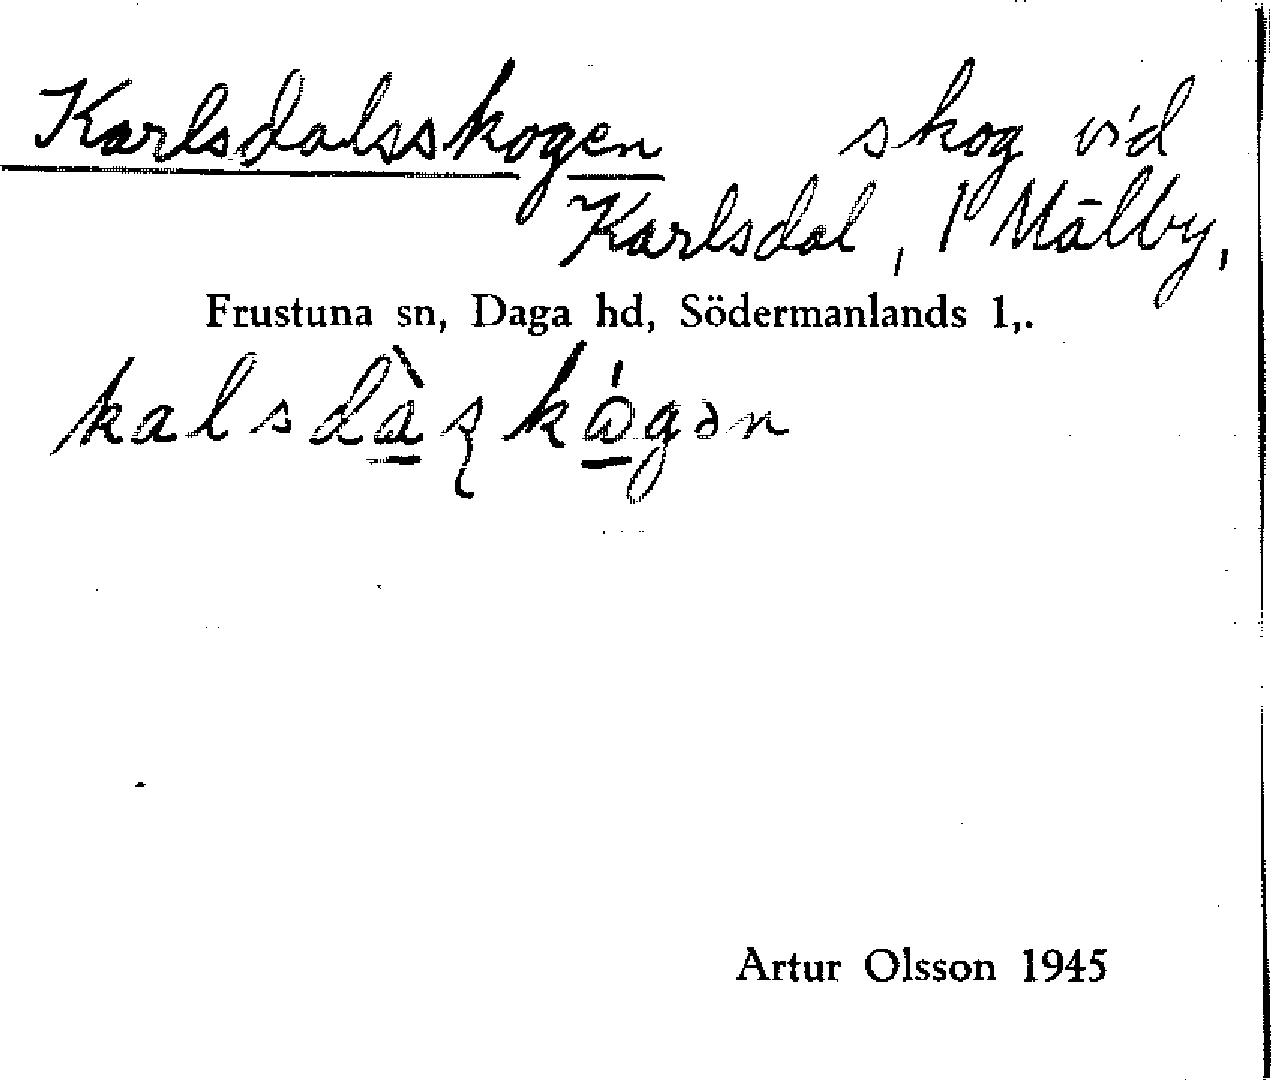 Karlsdalsskogen skog vid
Karlsdal, 1 Mälby,
Frustuna sn, Daga hd, Södermanlands l,.
Artur Olsson 1945